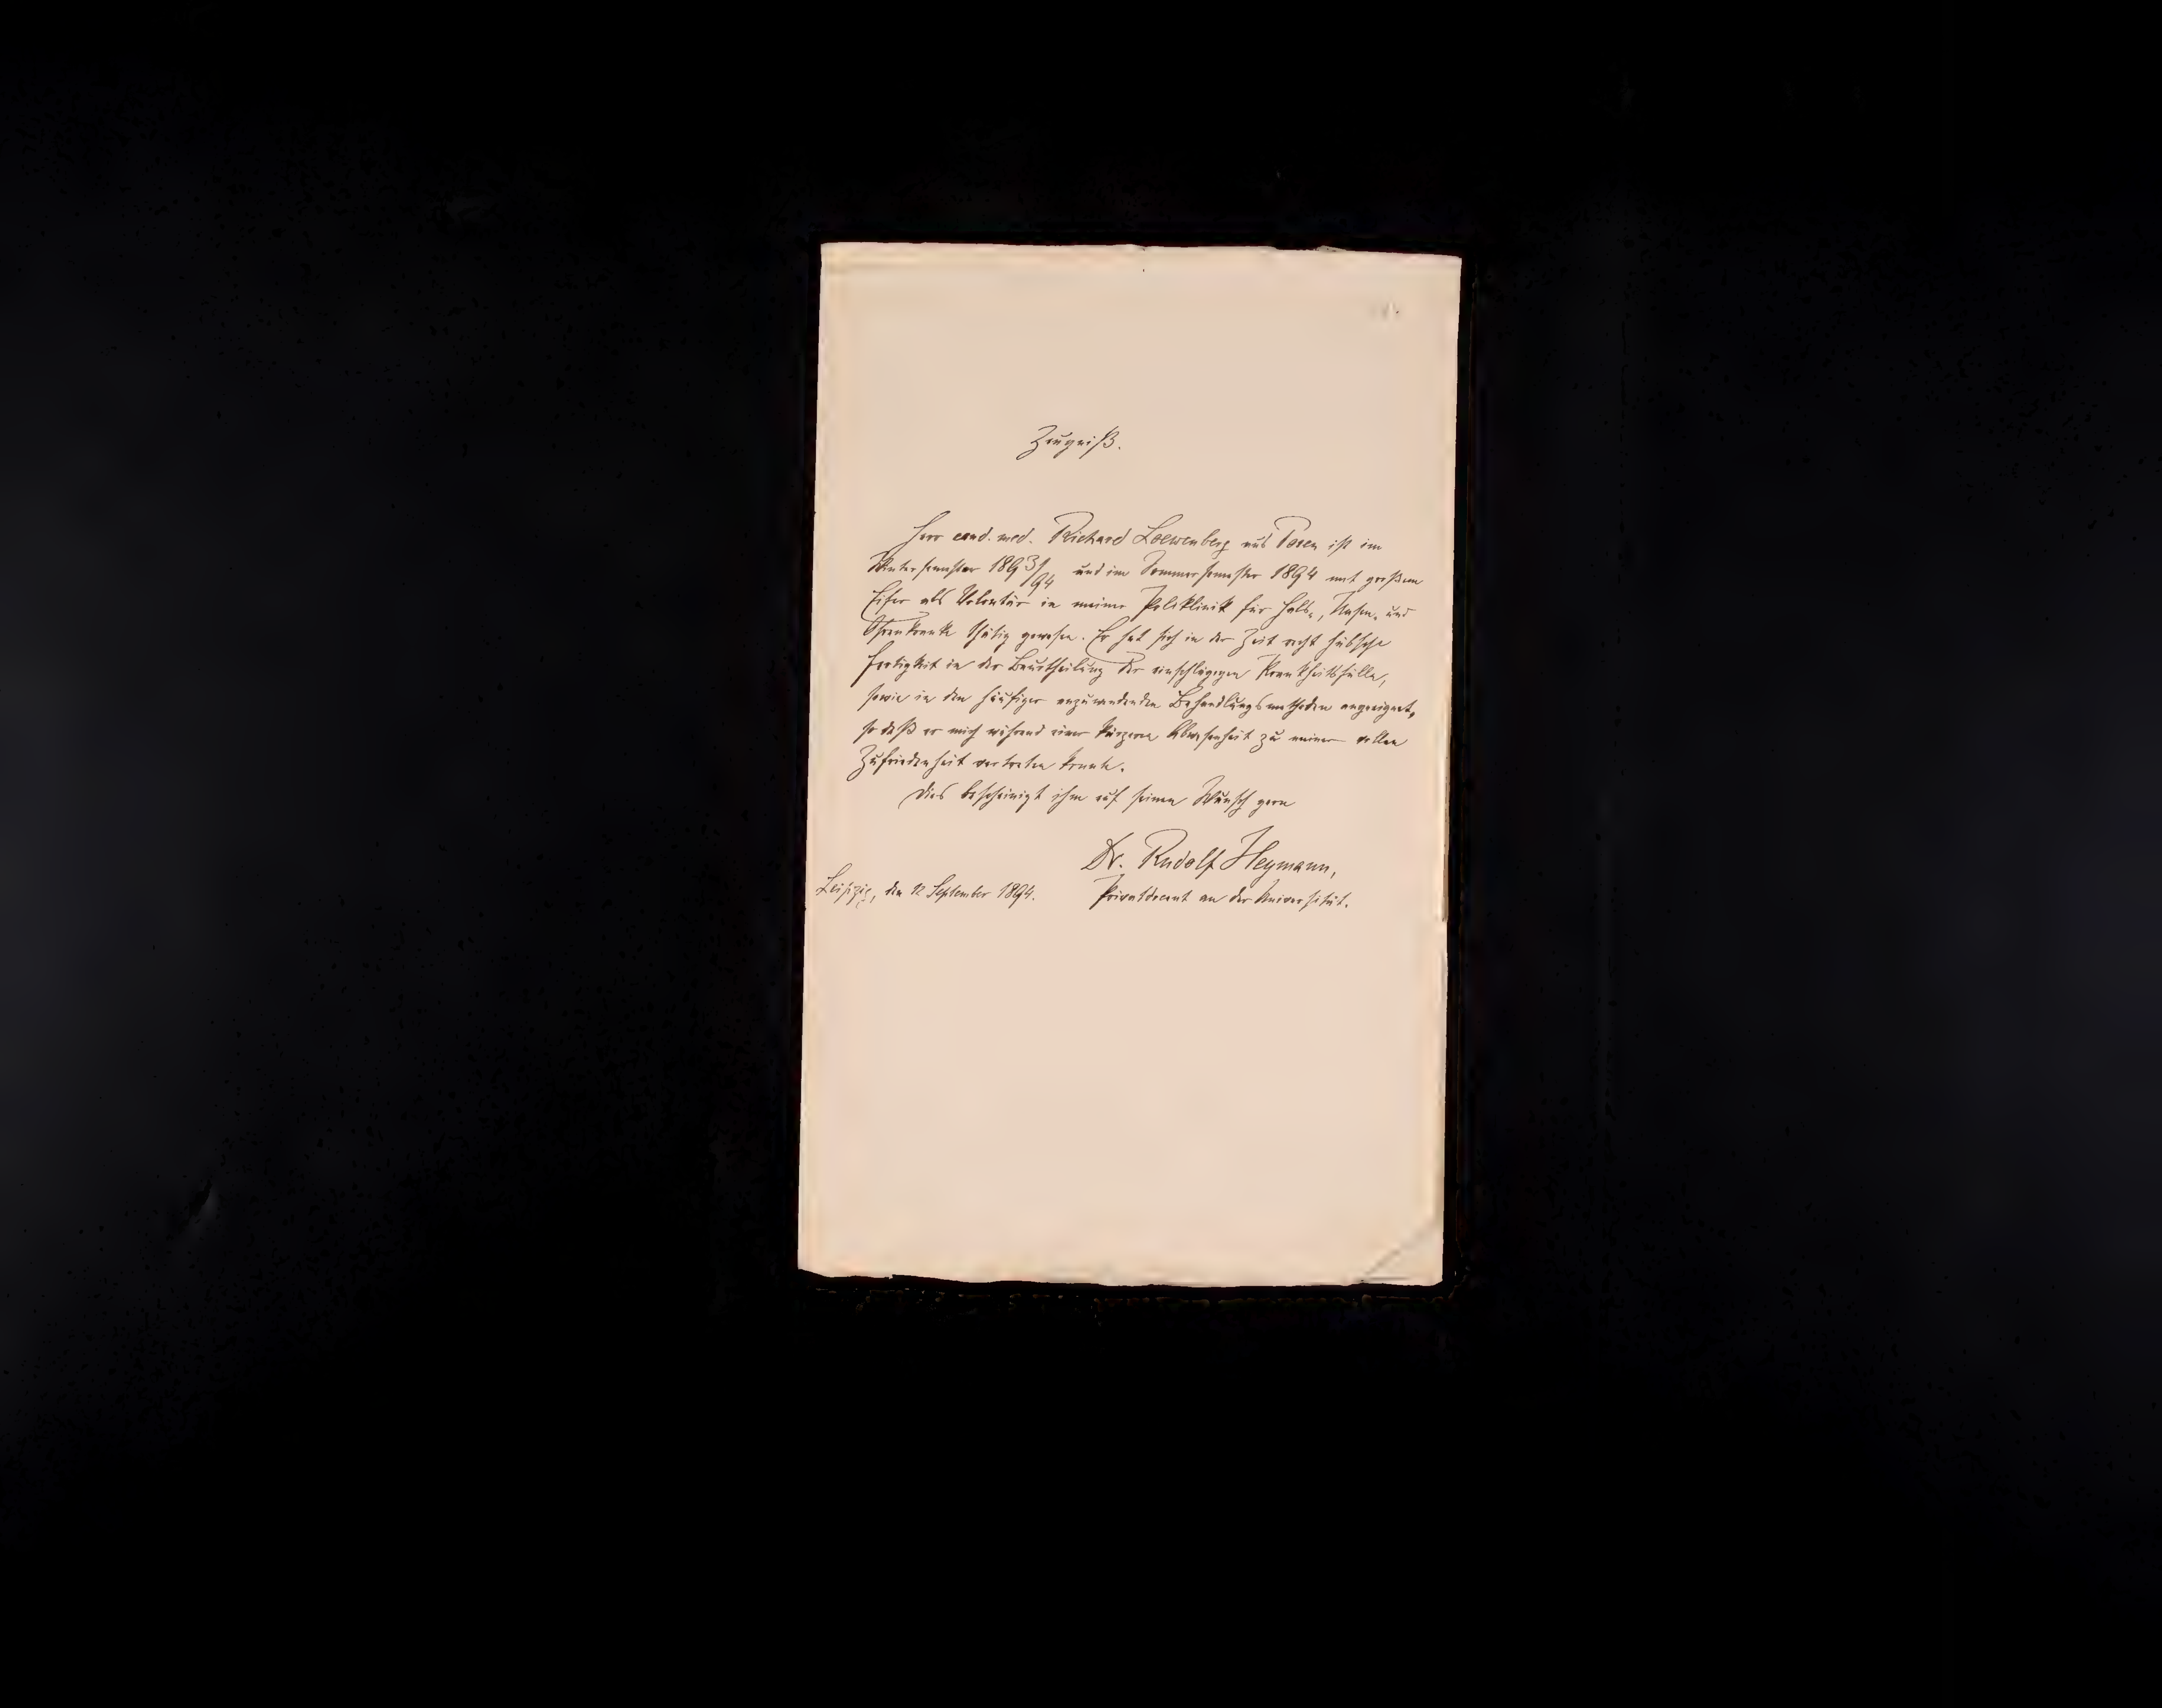 Zeugniß.
Herr cand. med. Richard Loewenberg aus Posen ist im
Wintersemester 1893/94 und im Sommersemester 1894 mit großem
Eifer als Volontär in meiner Poliklinik für Hals-, Nasen- und
Ohrenkranke thätig gewesen. Er hat sich in der Zeit recht hübsche
Fertigkeit in der Beurtheilung der einschlägigen Krankheitsfälle,
sowie in den häufiger anzuwendenden Behandlungsmethoden angeeignet,
so daß er mich während einer kürzeren Abwesenheit zu meiner vollen
Zufriedenheit vertreten konnte.
Dies bescheinigt ihm auf seinen Wunsch gern
Dr. Rudolf Heymann,
Leipzig, den 12 September 1894. Privatdocent an der Universität.